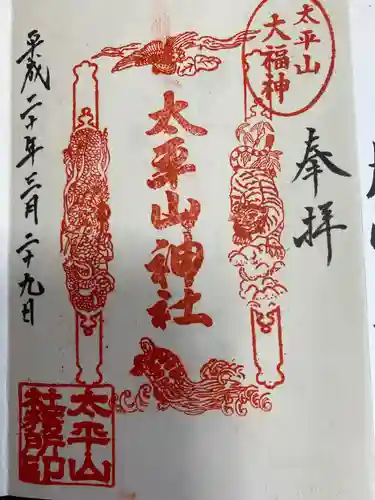 奉拝
太平山
大福神
太平山神社
平成二十年三月二十九日
太平山
社務所印